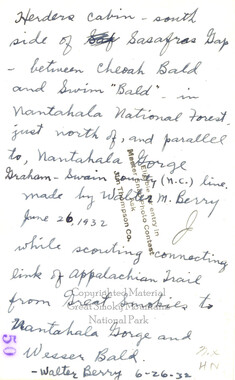 Herders cabin - south
side of Sasafras Gap
- between Cheoah Bald
and Swim "Bald" - in
Nantahala National Forest -
just north of, and parallel
to, Nantahala Gorge
Graham - Swain County (N.C.) line.
made by Walter M. Berry
June 26, 1932
while scouting connecting
link of Appalachian Trail
from Great Smokies to
Nantahala Gorge and
Wesser Bald.
- Walter Berry 6-26-32
Entry in
Photo Contest
Thompson Co.
Copyrighted Material
Great Smoky Mountains
National Park
50